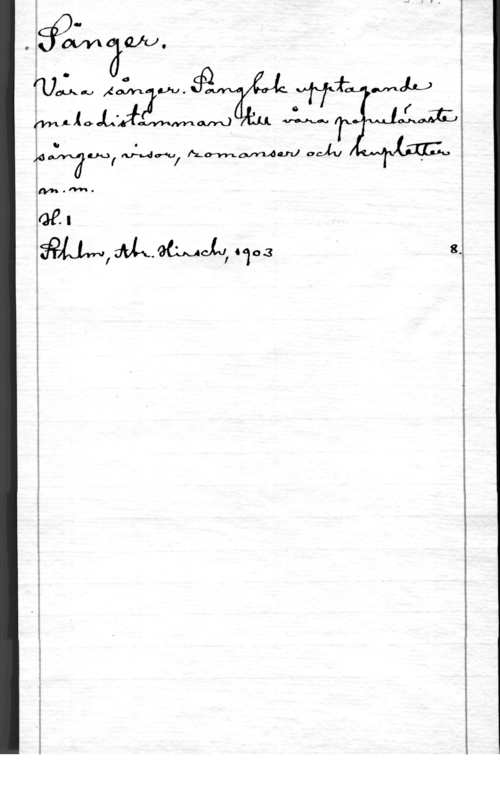 Sånger.
Våra sånger. Sångbok upptagande
melodistämman till våra populäraste
sånger, visor, romanser och kupletter
m. m.
H. 1
Sthlm, Abr. Hirsch, 1903 8.